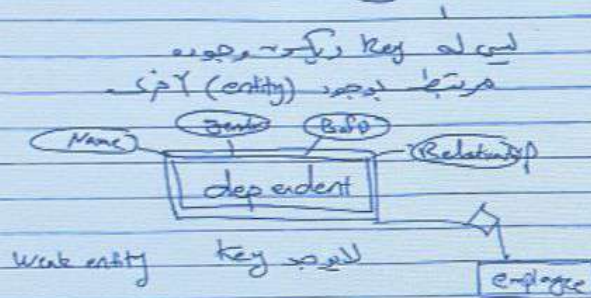 ليس له key ويكون وجوده
مرتبط بوجود (entity) آخر
Name
Relationship
dependent
weak entity لا يوجد key
employee